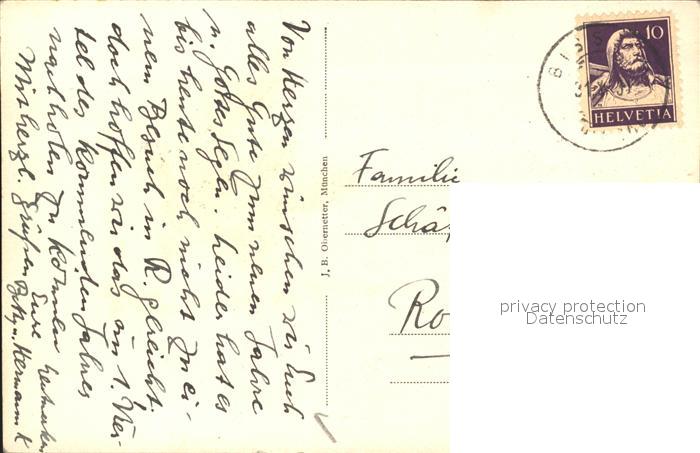 Von Herzen wünschen wir Euch
alles Gute zum neuen Jahre
u. Gottes Segen. Leider hat es
bis heute noch nicht zu ei-
nem Besuch in R. gleicht.
doch hoffen wir das am 1. Vier-
tel des kommenden Jahres
nachholen zu können
Mit herzl. Grüßen Eure
Hermann K
J. B. Obernetter, München
10
HELVETIA
Familie
Schä
Ro
privacy protection
Datenschutz